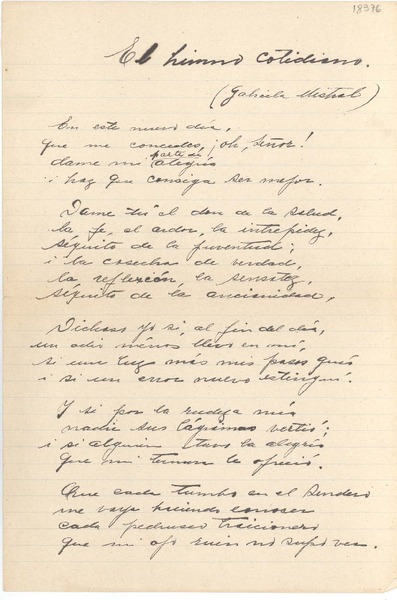 18976
El himno cotidiano.
(Gabriela Mistral)
En este nuevo día,
que me concedes, ¡oh, Señor!
parte de
dame mi alegría
i haz que consiga ser mejor.
Dame tú el don de la salud,
la fe, el ardor, la intrepidez,
séquito de la juventud;
i la cosecha de verdad,
la reflexión, la sensatez,
séquito de la ancianidad,
Dichoso yo si, al fin del día,
un odio menos llevo en mí,
si una luz más mis pasos guía
i si un error nuevo estinguí.
Y si por la rudeza mía
nadie sus lágrimas vertió;
i si alguien tuvo la alegría
que mi ternura le ofreció.
Que cada tumbo en el sendero
me vaya haciendo conocer
cada pedrusco traicionero
que mi ojo ruin no supo ver.